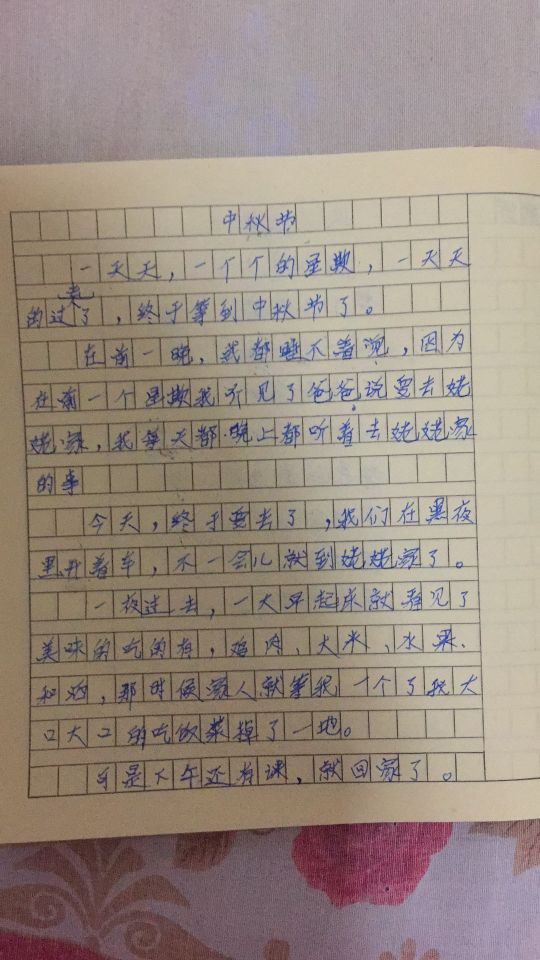 中秋节
一天天，一个个的星期，一天天
的过去了，终于等到中秋节了。
在前一晚，我都睡不着觉，因为
在前一个星期我听见了爸爸说要去姥
姥家，我每天都晚上都听着去姥姥家
的事
今天，终于要去了，我们在黑夜
里开着车，不一会儿就到姥姥家了。
一夜过去，一大早起床就看见了
美味的吃的有，鸡肉、大米、水果、
和酒，那时候家人就等我一个了我大
口大口的吃饭菜掉了一地。
可是下午还有课，就回家了。